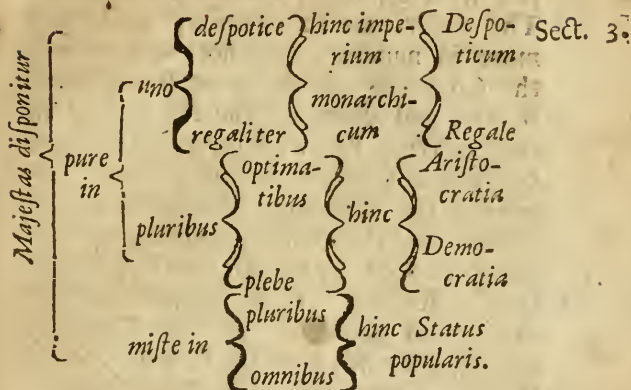 Sect. 3.
Majeſtas diſponitur
pure
in
uno
deſpotice
regaliter
hinc impe-
rium
monarchi-
cum
Deſpo-
ticum
Regale
pluribus
optima-
tibus
plebe
hinc
Ariſto-
cratia
Demo-
cratia
miſte in
pluribus
omnibus
hinc Status
popularis.